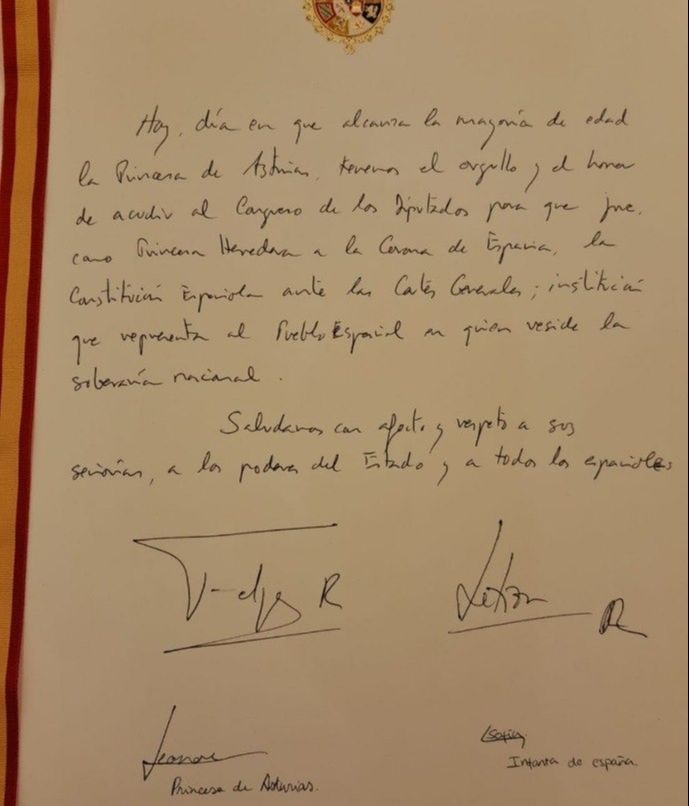 Hoy, día en que alcanza la mayoría de edad
la Princesa de Asturias, tenemos el orgullo y el honor
de acudir al Congreso de los Diputados para que jure,
como Princesa Heredera a la Corona de España, la
Constitución Española ante las Cortes Generales; institución
que representa al Pueblo Español en quien reside la
soberanía nacional.
Saludamos con afecto y respeto a sus
señorías, a los poderes del Estado y a todos los españoles
Felipe R
Letizia R
Leonor
Princesa de Asturias.
Sofía
Infanta de españa.